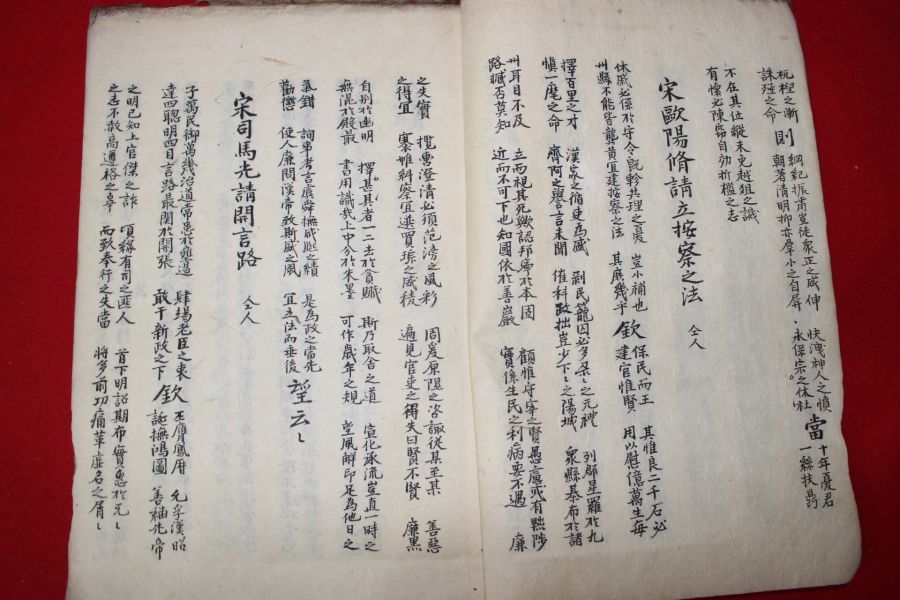 杌桯之漸 則 綱紀振肅豈徒衆正之咸伸 快洩神人之憤 當 十年憂君
誅殛之命 朝著清明抑亦羣小之自屏 永保宗之休社 一絲扶鼎
不在其位縱未免越俎之譏
有懷必陳竊自効折檻之志
宋歐陽脩請立按察之法 仝人
休戚必係於守令旣軫共理之憂 豈小補也 欽 保民而王 其惟良二千石必
州縣不能皆龔黃宜建按察之法 其庶幾乎 建官惟賢 用以慰億萬生每
擇百里之才 漢家之循吏爲盛 剥民籠因必多杲之元禮 列郡星羅於九
愼一麾之命 齊阿之譽言未聞 催科政拙豈少卜之陽城 衆縣棊布於諸
州耳目不及 立而視其死歟認邦命於本固 顧惟守宰之賢愚處或有黜陟
路臧否莫知 近而不可下也知國依於善巖 實係生民之利病要不遇 廉
之失實 攬轡澄清必須范滂之風彩 周爰原隰之咨諏從其至某 善惡
之得宜 褰帷糾察宜選賈琮之威稜 遍見官吏之得失曰賢不賢 廉黑
自別於幽明 擇其甚者一二去於貪贓 斯乃取舍之道 宣化承流豈直一時之
無混於殿最 書用識哉上中分於朱墨 可作歲年之規 望風解印足爲他日之
氣鉗 詢事考言虞舜撫咸熙之績 是爲政之當先 望云
勸懲 使人廉問漢帝致斯盛之風 宜立法而垂後
宋司馬光請開言路 仝人
子萬民御萬幾治道常患於壅遏 肆場老臣之衷 欽 丕膺鳳曆 允孚漢昭
達四聰明四目言路最関於開張 敢干新政之下 誕撫鴻圖 善紬先帝
之明已知上官傑之詐 頃緣有司之匪人 首下明詔期布實惠於元
之志不敢高遵裕之辜 而致奉行之失當 將多前功痛革虛名之屑